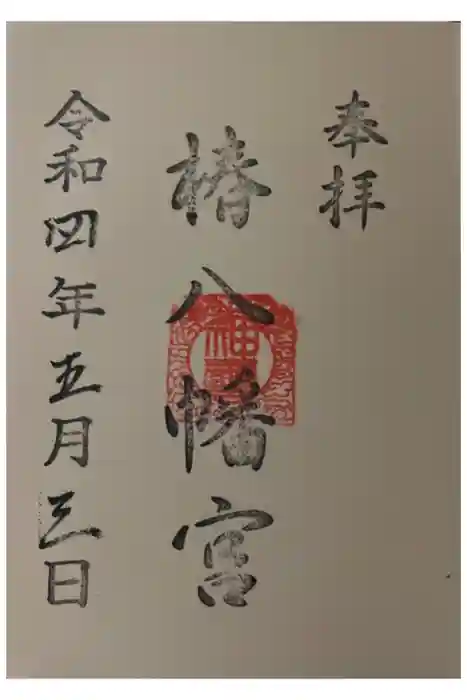 奉拝
椿八幡宮
令和四年五月三日